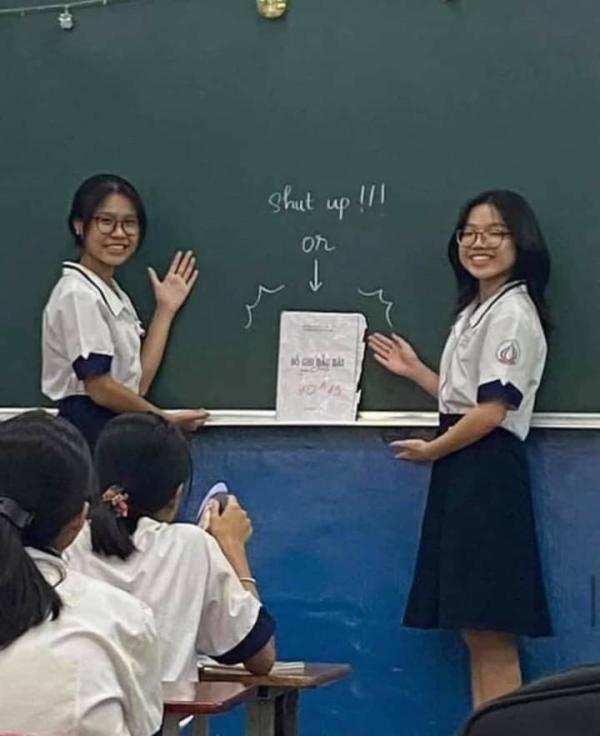 Shut up !!!
or
SỔ GHI ĐẦU BÀI